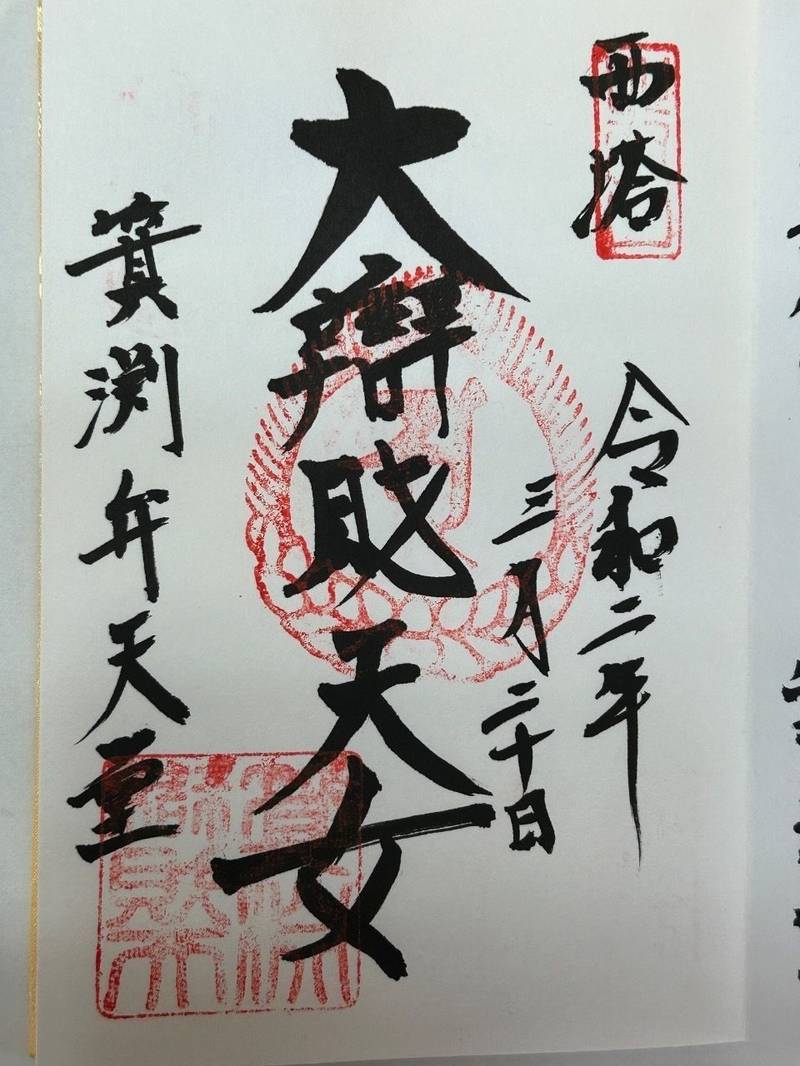 西塔
令和二年
三月二十日
大辯財天女
箕渕弁天堂